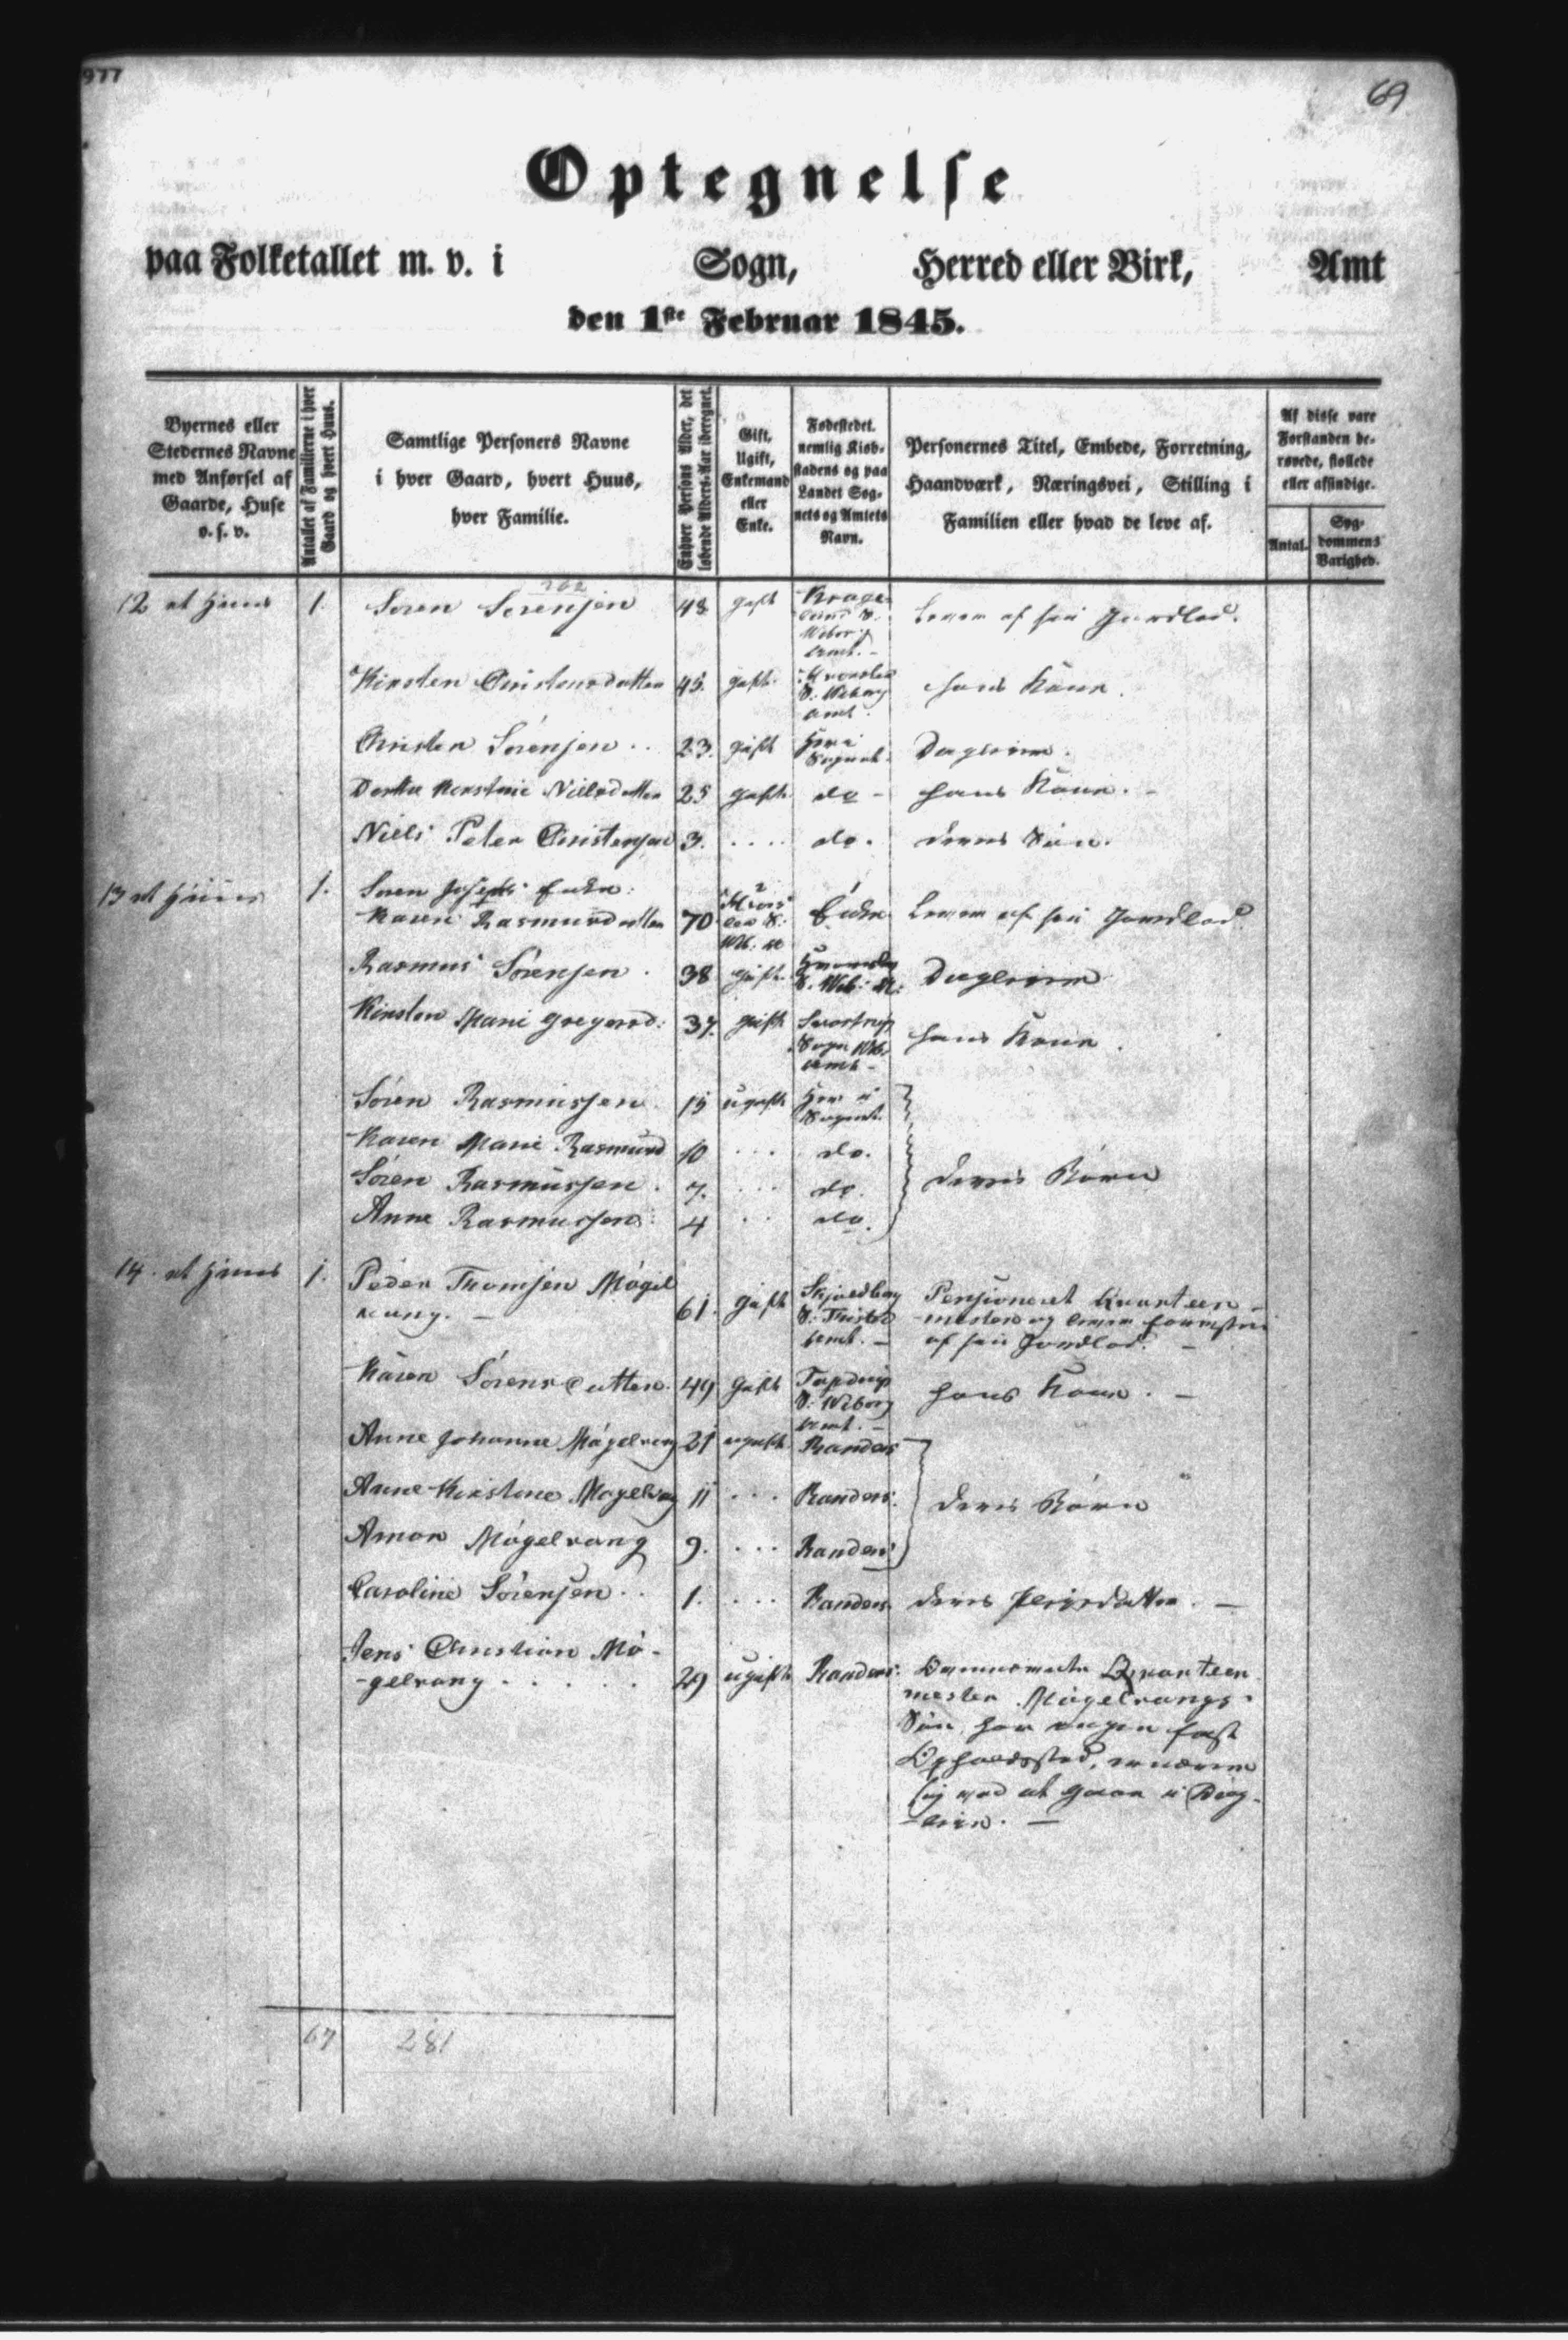 977
69
Optegnelse
paa Folketallet m. v. i Sogn, Herred eller Birk, Amt
den 1ste Februar 1845.
Byernes eller Stedernes Navne med Anførsel af Gaarde, Huse o. s. v.
Antallet af Familierne i hver Gaard og hvert Huus.
Samtlige Personers Navne i hver Gaard, hvert Huus, hver Familie.
Enhver Persons Alder, det løbende Alders-Aar iberegnet.
Gift, Ugift, Enkemand eller Enke.
Fødestedet. nemlig Kiøbstadens og paa Landet Sognets og Amtets Navn.
Personernes Titel, Embede, Forretning, Haandværk, Næringsvei, Stilling i Familien eller hvad de leve af.
Af disse vare Forstanden berøvede, fiollede eller afsindige.
Antal.
Sygdommens Varighed.
12 et Huus 1. Søren Sørensen 48 gift Lever af sin Jordlod.
Kirsten Christensdatter 45. gift S. Wiborg Amt. hans Kone.
Christen Sørensen .. 23. gift Her i Sognet. Dagleier.
Nielsdatter 25 gift do - hans Kone. -
Niels Peter Christensen 3. .... do. deres Søn.
13 et Huus 1. Søren Enke:
Karen Rasmusdatter 70 Enke Lever af sin Jordlod
Rasmus Sørensen . 38 gift S. Wib: A: Dagleier
Kirsten Marie Gregersd: 37. gift Sogn Wib. Amt - hans Kone.
Søren Rasmussen 15 ugift Her i Sognet.
Karen Marie Rasmusd 10 ... do.
Søren Rasmussen . 7. ... do. deres Børn
Anne Rasmussen 4 .. do.
14. et Huus 1. Peder Thomsen Møgel
vang. - 61. gift S: Thisted Amt. - Pensioneret Kvarteer-
mester og lever
af sin Jordlod. -
Karen Sørensdatter. 49 gift Tapdrup S: Wiborg Amt. - hans Kone. -
Anne Johanne Møgelvang 21 ugift Randers
Anne Kirstine Møgelvang 11 ... Randers. deres Børn
Møgelvang 9. ... Randers
Caroline Sørensen .. 1. .... Randers. deres Pleiedatter. -
Jens Christian Mø-
-gelvang ..... 29 ugift Randers. Qvarteer
mester Møgelvangs
Søn, har ingen fast
Opholdssted, ernærer
sig ved at gaae i Dag-
-leie. -
67 281